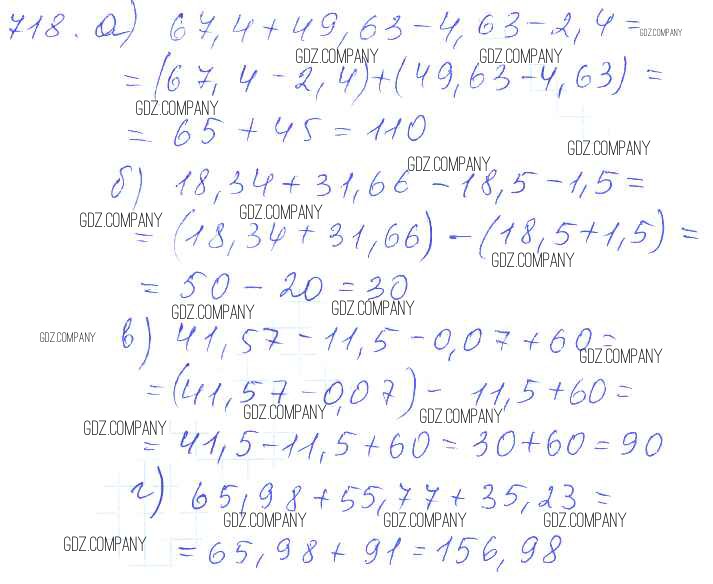 718. а) 67,4+49,63-4,63-2,4= GDZ.COMPANY
GDZ.COMPANY GDZ.COMPANY
=(67,4-2,4)+(49,63-4,63)=
GDZ.COMPANY
= 65+45=110
GDZ.COMPANY
GDZ.COMPANY
б) 18,34+31,66-18,5-1,5=
GDZ.COMPANY GDZ.COMPANY
=(18,34+31,66)-(18,5+1,5)=
GDZ.COMPANY
= 50-20=30
GDZ.COMPANY GDZ.COMPANY
GDZ.COMPANY в) 41,57-11,5-0,07+60=
GDZ.COMPANY
=(41,57-0,07)- 11,5+60=
GDZ.COMPANY GDZ.COMPANY
GDZ.COMPANY
= 41,5-11,5+60=30+60=90
г) 65,98+55,77+35,23=
GDZ.COMPANY GDZ.COMPANY GDZ.COMPANY
GDZ.COMPANY =65,98+91=156,98